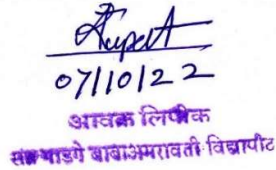 07/10/22
आवक लिपीक
संत गाडगे बाबा अमरावती विद्यापीठ